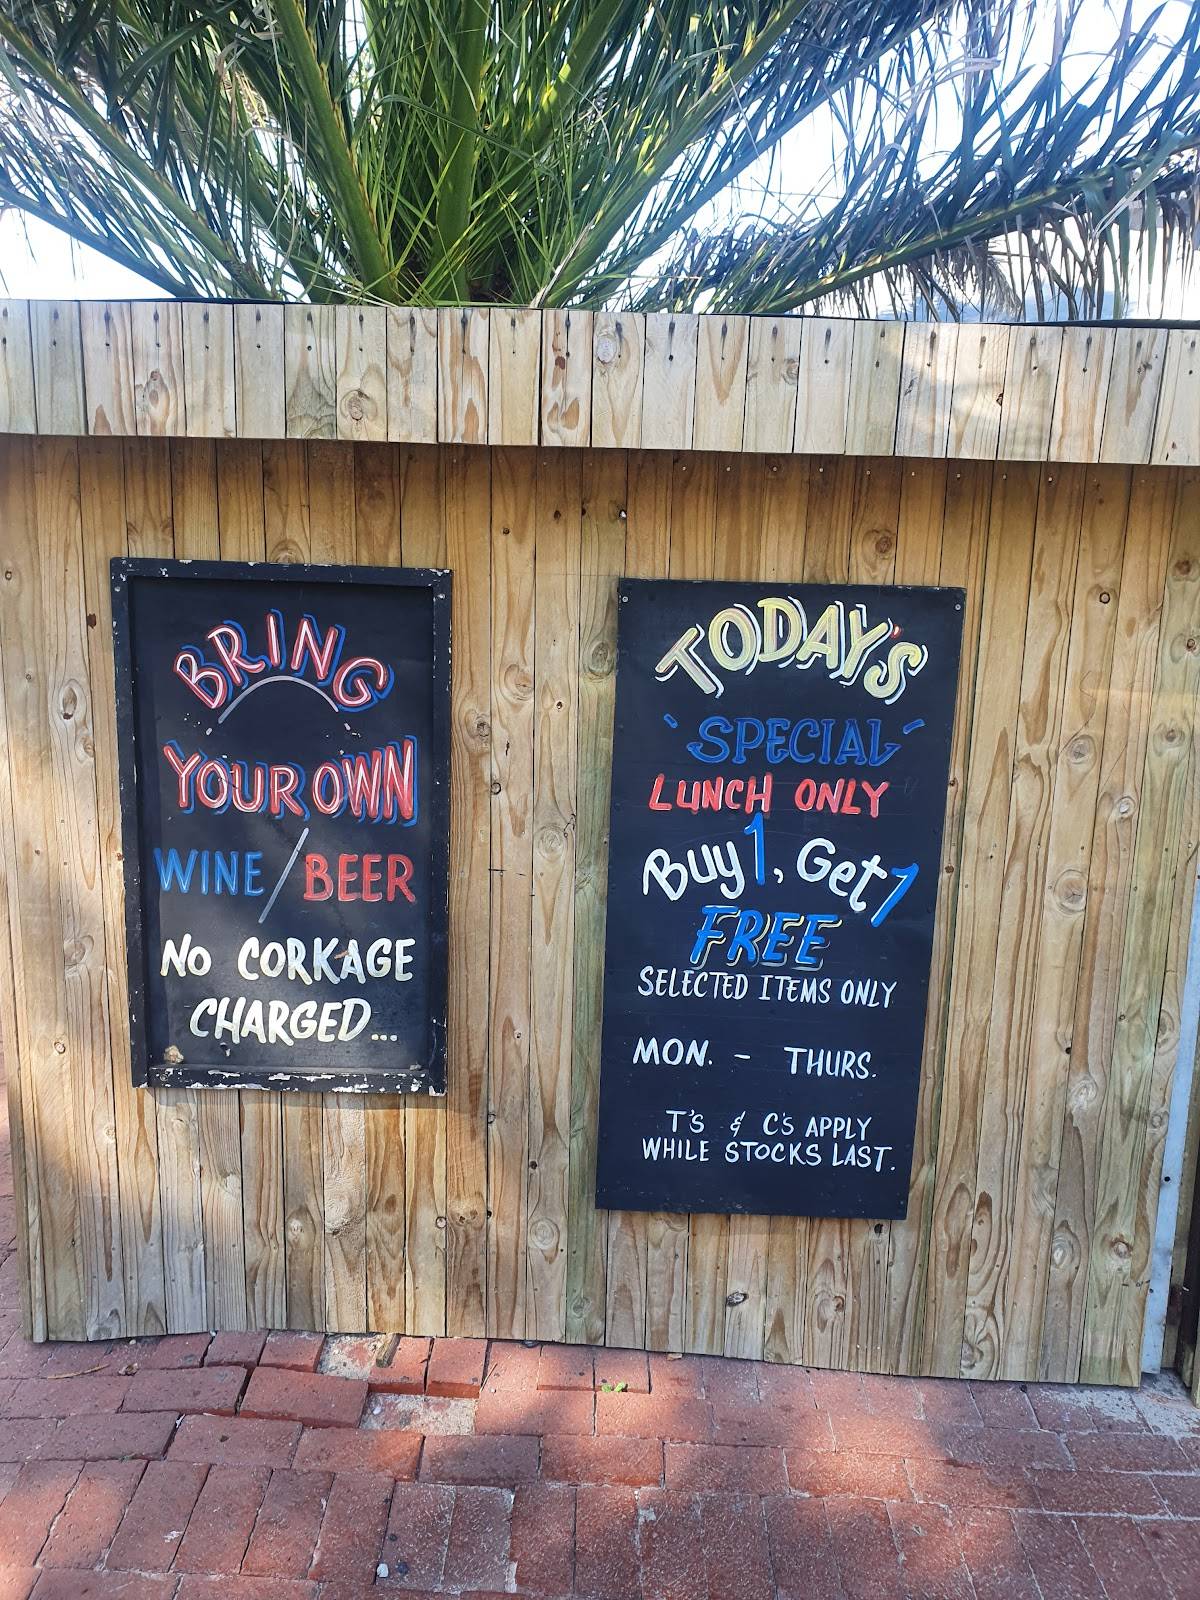 BRING
YOUR OWN
WINE/BEER
NO CORKAGE
CHARGED...
TODAY'S
'SPECIAL'
LUNCH ONLY
Buy 1, Get 1
FREE
SELECTED ITEMS ONLY
MON. - THURS.
T'S & C'S APPLY
WHILE STOCKS LAST.